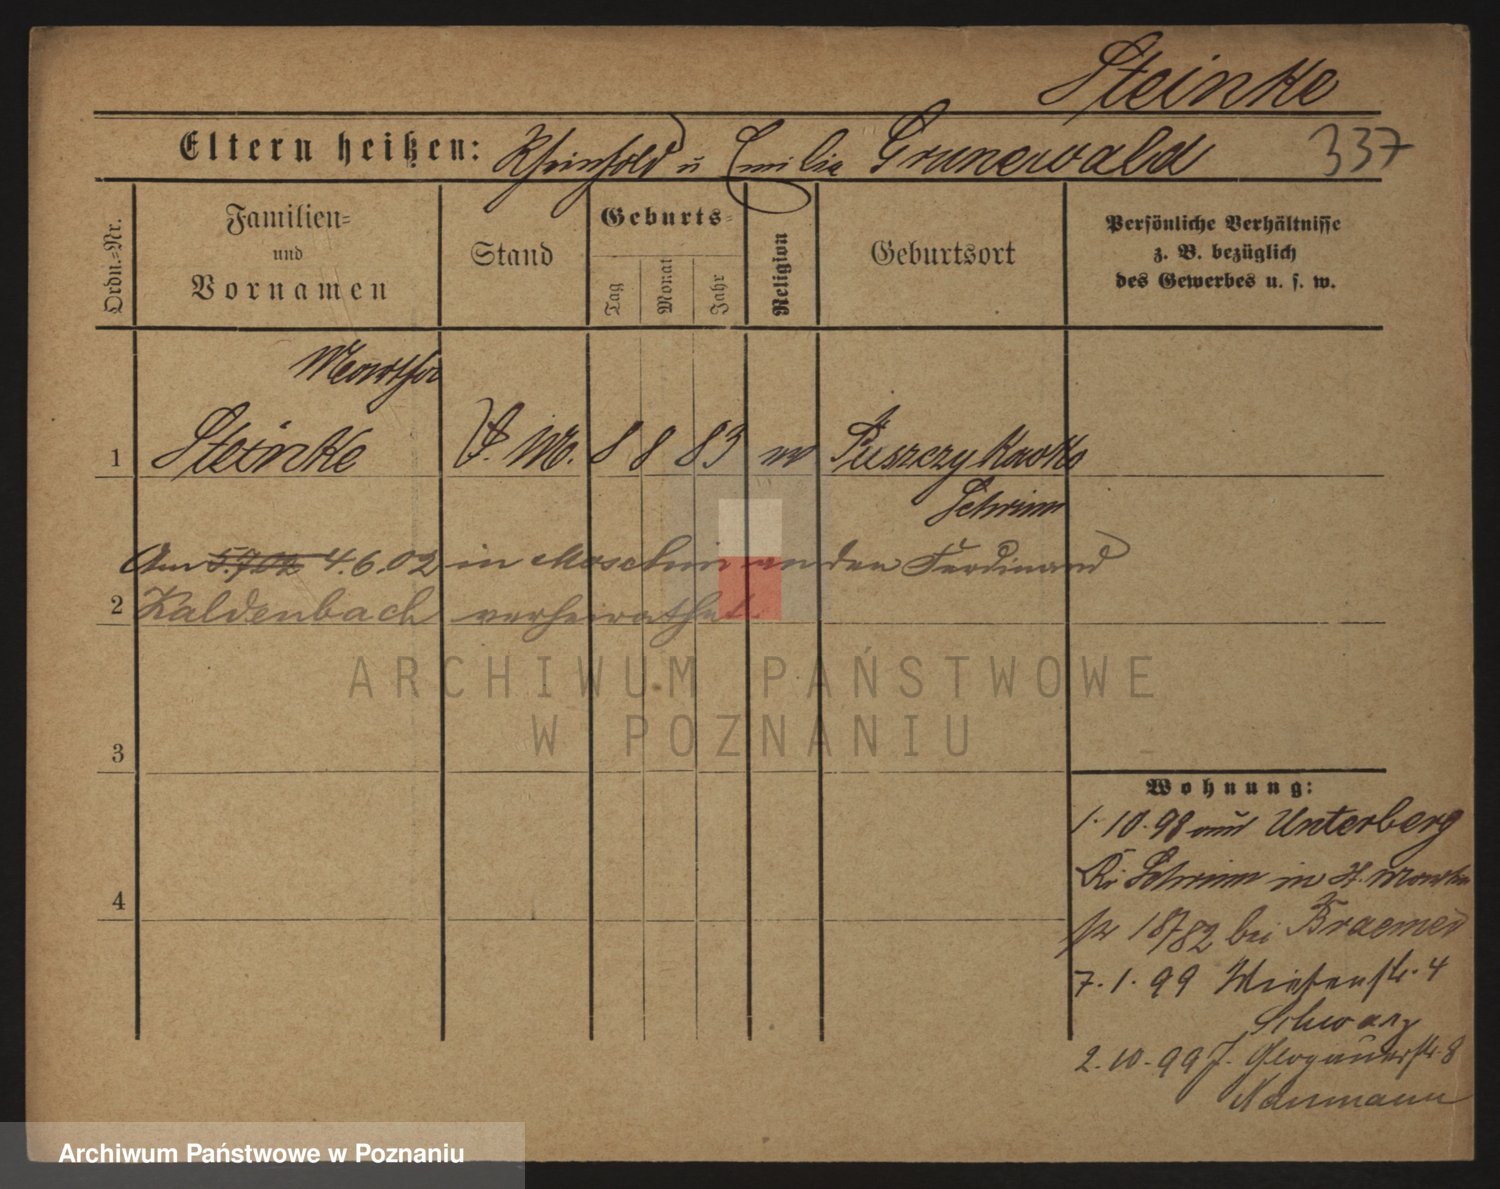 Steinke
Eltern heißen: Rheinhold u Emilie Grunewald 337
Ordn.-Nr.
Familien-
und
Vornamen
Stand
Geburts-
Tag
Monat
Jahr
Religion
Geburtsort
Persönliche Verhältnisse
z. B. bezüglich
des Gewerbes u. s. w.
Martha
1 Steinke D. M. 8 8 83 ev Puszczykowko
Schrimm
Am 5.7.02 4.6.02 in Moschin an den Ferdinand
2 Kaldenbach verheirathet.
3
4
Wohnung:
1. 10. 98 aus Unterberg
Kr Schrimm in St. Martin
str 18/82 bei Kraemer
7. 1. 99 Wiesenstr. 4
Schwarz
2. 10. 99 J. Glogauerstr. 8
Naumann
ARCHIWUM PAŃSTWOWE
W POZNANIU
Archiwum Państwowe w Poznaniu